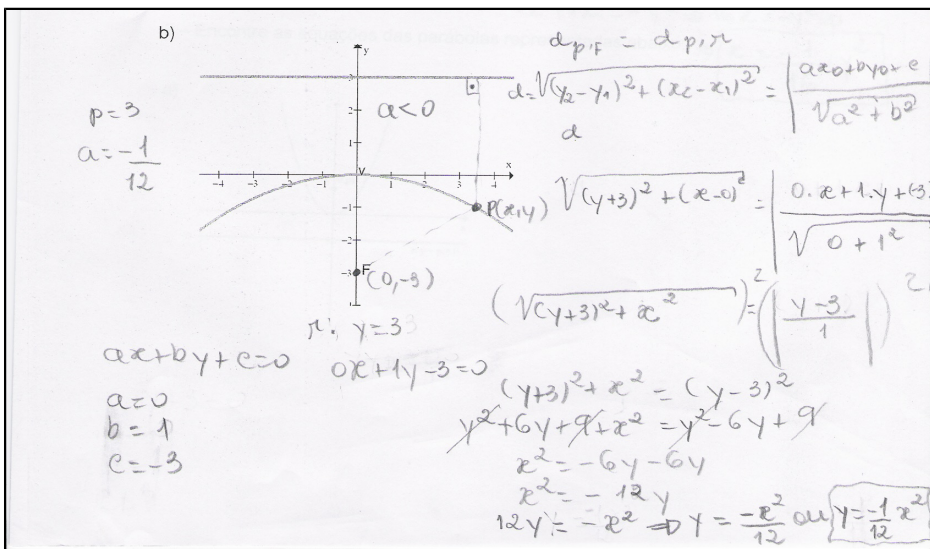 b)
y
3
2
1
-1
-2
-3
-4 -3 -2 -1 1 2 3 4
x
V
a<0
P(x,y)
F
(0,-3)
p=3
a=-1/12
r: y=3
ax+by+c=0 0x+1y-3=0
a=0
b=1
c=-3
d P,F = d P,r
d=√((y2-y1)²+(x2-x1)²) = |ax0+by0+c / √(a²+b²)
d
√((y+3)²+(x-0)²) = |0.x+1.y+(-3) / √(0+1²)
(√((y+3)²+x²))² = (|y-3 / 1|)²
(y+3)²+x² = (y-3)²
y²+6y+9+x² = y²-6y+9
x²=-6y-6y
x²=-12y
12y=-x² ⇒ y=-x²/12 ou y=-1/12 x²